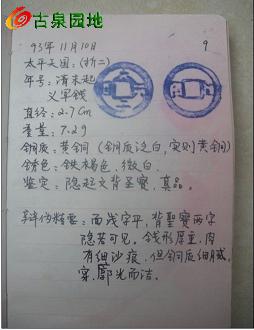 古泉园地
93年11月10日
9
太平天国:(折二)
年号:清末起
义军钱
直经:2.7Cm
重量:7.29
铜质:黄铜(铜质泛白,实则黄铜)
锈色:铁褐色,微白.
鉴定:隐起文背圣寳,真品.
辨伪精要:面浅字平,背聖寳两字
隐若可见。钱形厚重,肉
有细沙痕,但铜质细腻
穿,廓光而洁.